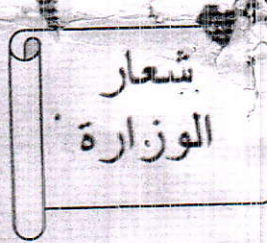 شعار
الوزارة